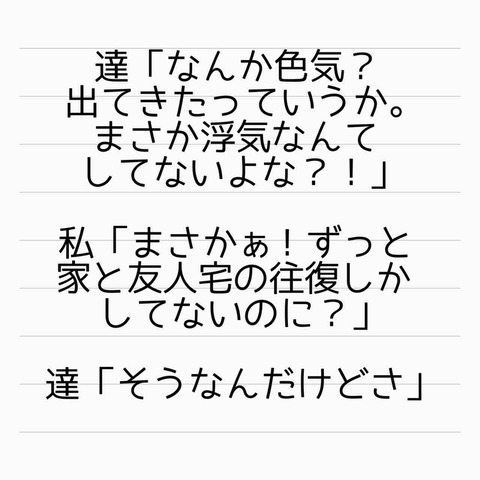 達「なんか色気？
出てきたっていうか。
まさか浮気なんて
してないよな？！」
私「まさかぁ！ずっと
家と友人宅の往復しか
してないのに？」
達「そうなんだけどさ」